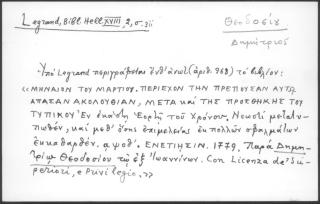 Legrand, Bibl. Hell. XVIII, 2, σ. 311
Θεοδοσίου
Δημήτριος
Ὑπὸ Legrand περιγράφεται ἐνθ' ἀνωτ. (ἀριθ. 968) τὸ βιβλίον:
«ΜΗΝΑΙΟΝ ΤΟΥ ΜΑΡΤΙΟΥ. ΠΕΡΙΕΧΟΝ ΤΗΝ ΠΡΕΠΟΥΣΑΝ ΑΥΤῼ
ΑΠΑΣΑΝ ΑΚΟΛΟΥΘΙΑΝ, ΜΕΤΑ ΚΑΙ ΤΗΣ ΠΡΟΣΘΗΚΗΣ ΤΟΥ
ΤΥΠΙΚΟΥ Ἐν ἑκάστῃ Ἑορτῇ τοῦ Χρόνου. Νεωστὶ μετατυ-
πωθέν, καὶ μεθ' ὅσης ἐπιμελείας ἐκ πολλῶν σφαλμάτων
ἐκκαθαρθέν. αψοθ'. ΕΝΕΤΙΗΣΙΝ. 1779. Παρὰ Δημη-
τρίῳ Θεοδοσίου τῷ ἐξ Ἰωαννίνων. Con Licenza de' Su-
periori, e Privilegio.»